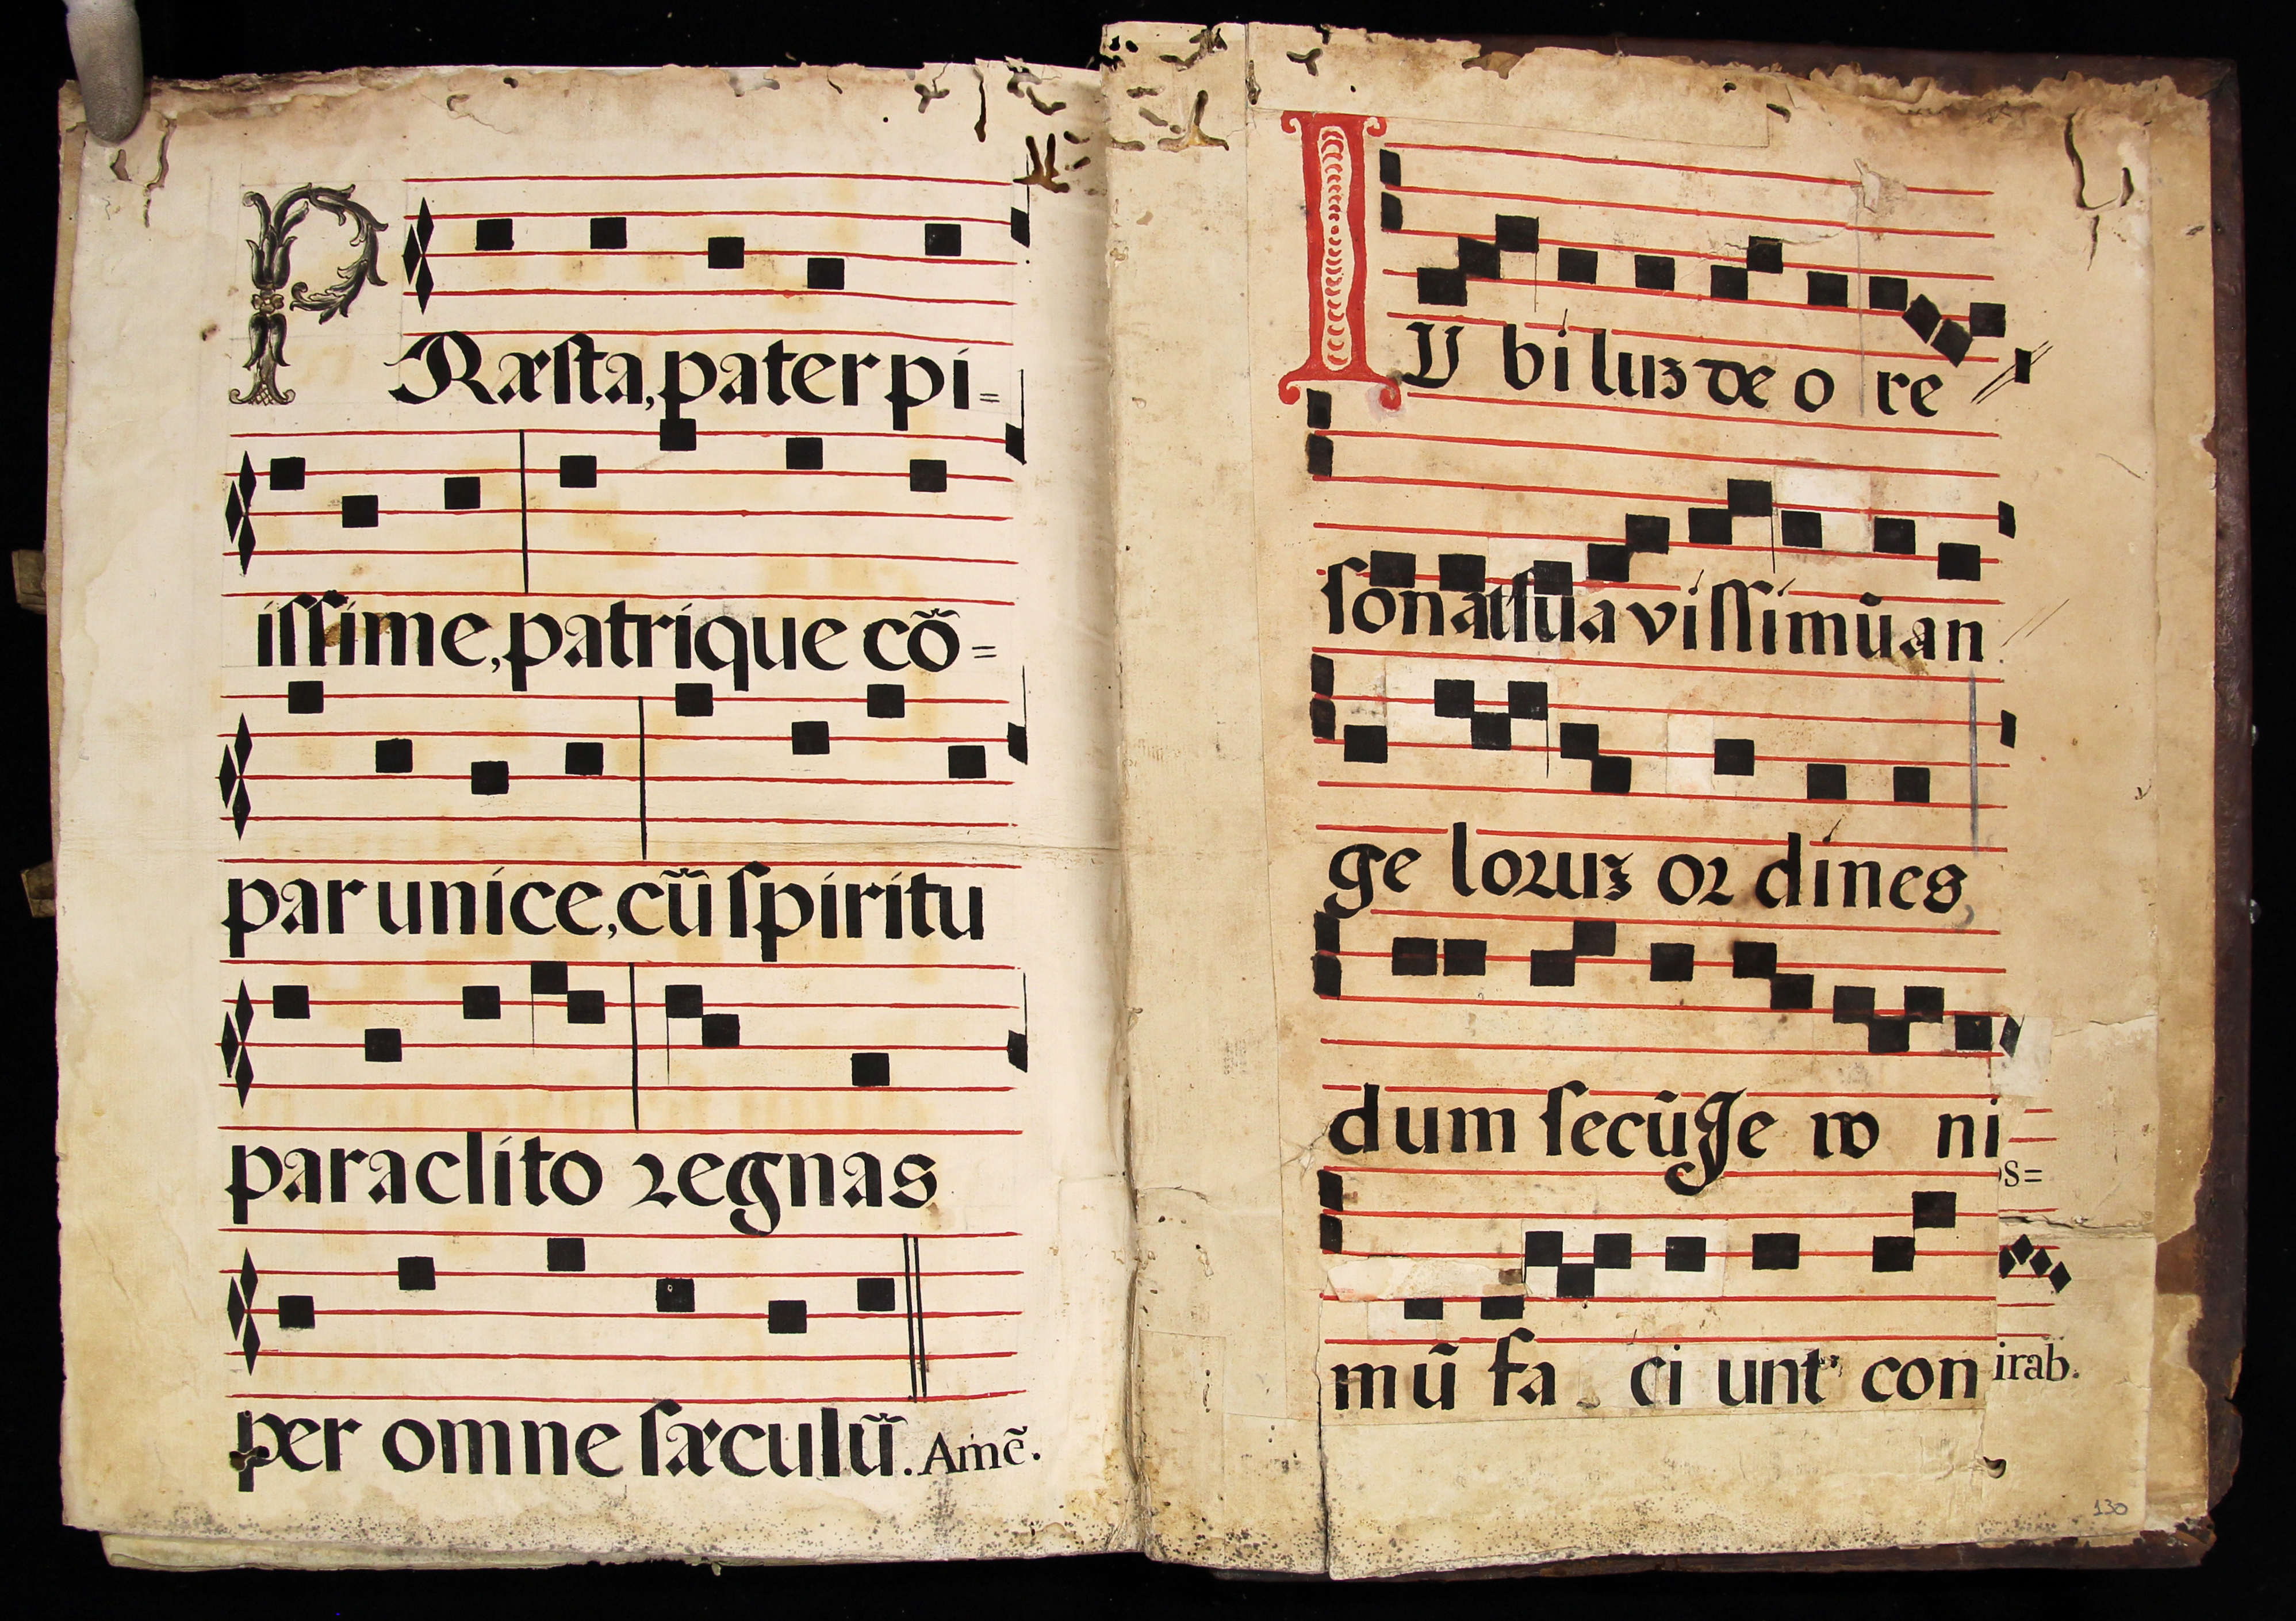 PRæsta, pater pi=
issime, patrique cõ=
par unice, cũ spiritu
paraclito regnas
per omne sæculũ. Amẽ.
IU bi luz de o re
sonat sua vissimū an
ge loruz or dines
dum secū Je ro ni
s=
mū fa ci unt con
irab.
130